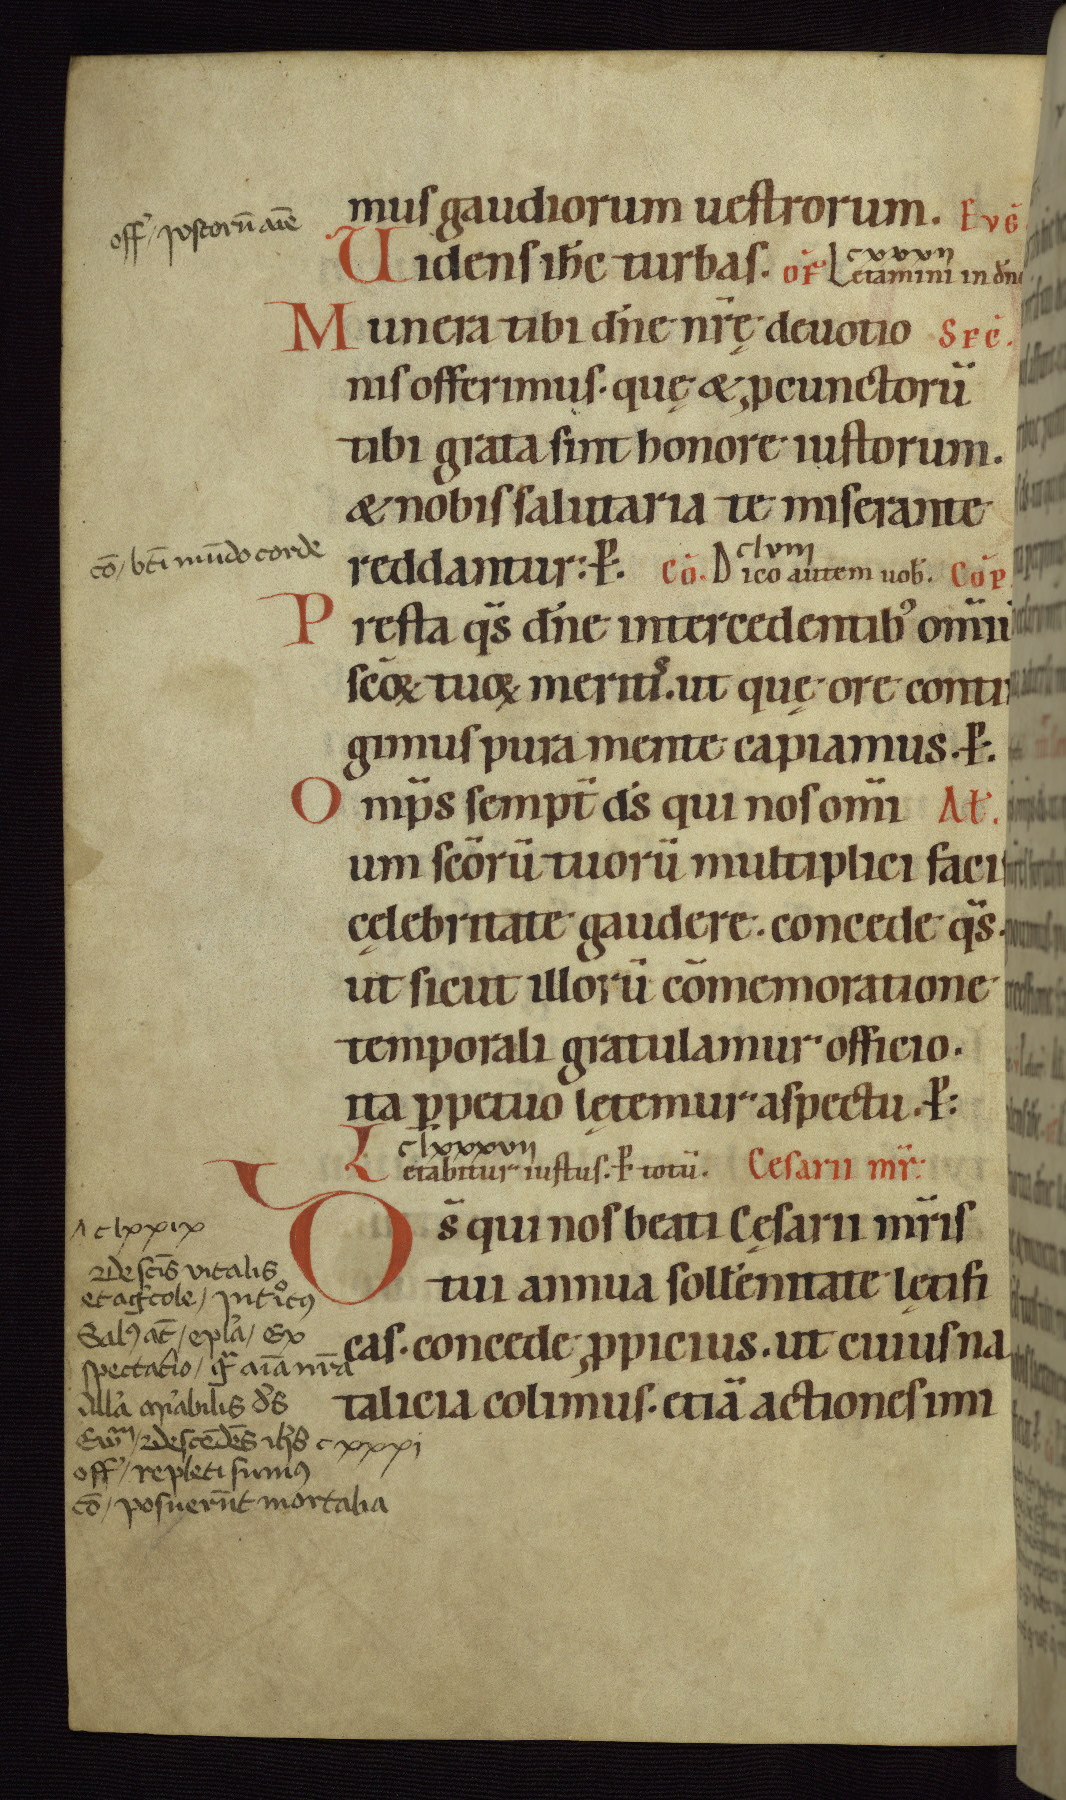 mus gaudiorum uestrorum. Evḡ
off᾽ / iustorū aīe
Uidens ih̄c turbas. of̄ Letamini in dn̄o
cxxxvii
Munera tibi dn̄e nr̄ę deuotio Sec̄.
nis offerimus. quę & p cunctorū
tibi grata sint honore iustorum.
& nobis salutaria te miserante
clviii
reddantur: P. Cō. Dico autem uob̄. Cōp
cō / bt̄i mūdo corde
Presta qs̄ dn̄e intercedentib᾽ omīū
scōꝝ tuoꝝ meritis. ut quę ore conti
gimus pura mente capiamus. P.
Omps̄ sempt̄ ds̄ qui nos omī At̄.
um scōrū tuorū multiplici facis
cęlebritate gaudere. concede qs̄.
ut sicut illorū cōmemoratione
temporali gratulamur officio.
ita ꝑpetuo lętemur aspectu. P:
clxxxvii
Letabitur iustus. P totū. Cesarii mr̄:
Ds̄ qui nos beati Cęsarii mr̄is
tui annua sollēnitate lętifi
cas. concede ꝓpicius. ut cuius na
talicia colimus. etiā actiones imi
A clxxix
De scīs vitalis
et agͥcole / Intͥoitus
Salꝰ at̄ / epla᾽ / Ex
spectatio / gͣ aīa nrā
Alla᾽ mͥabilis ds̄
Ewͣm / Descēdēs ihs̄ cxxxi
off᾽ / repleti sumꝰ
cō / posuerūt mortalia